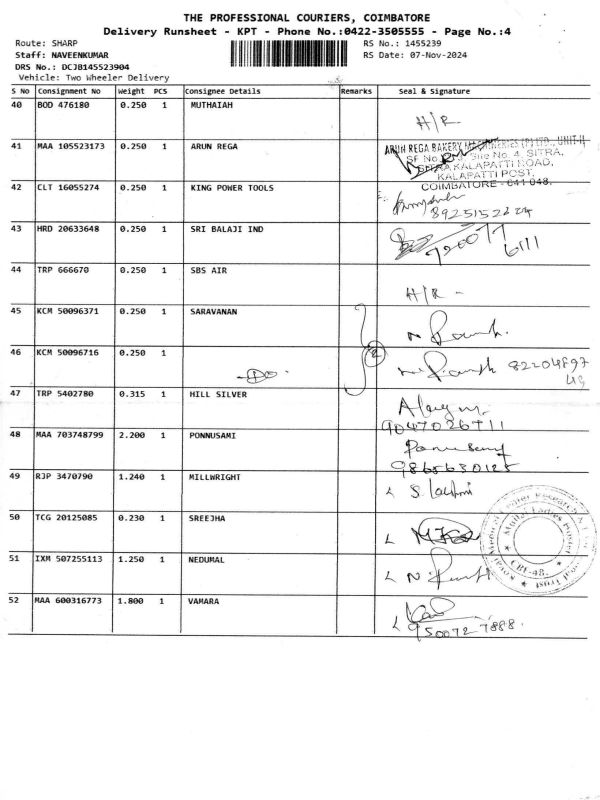 THE PROFESSIONAL COURIERS, COIMBATORE
Delivery Runsheet - KPT - Phone No.:0422-3505555 - Page No.:4
Route: SHARP RS No.: 1455239
Staff: NAVEENKUMAR RS Date: 07-Nov-2024
DRS No.: DCJB145523904
Vehicle: Two Wheeler Delivery
S No Consignment No Weight PCS Consignee Details Remarks Seal & Signature
40 BOD 476180 0.250 1 MUTHAIAH
H/R
41 MAA 105523173 0.250 1 ARUN REGA
ARUN REGA BAKERY MACHINERIES (P) LTD., UNIT-II
SF No. Site No. 4, SITRA,
SITRA KALAPATTI ROAD,
KALAPATTI POST,
COIMBATORE - 641 048.
42 CLT 16055274 0.250 1 KING POWER TOOLS
43 HRD 20633648 0.250 1 SRI BALAJI IND
44 TRP 666670 0.250 1 SBS AIR
H/R -
45 KCM 50096371 0.250 1 SARAVANAN
46 KCM 50096716 0.250 1
-Do- 2
47 TRP 5402780 0.315 1 HILL SILVER
9047026711
48 MAA 703748799 2.200 1 PONNUSAMI
Ponnusamy
9865630125
49 RJP 3470790 1.240 1 MILLWRIGHT
S. Lakshmi
50 TCG 20125085 0.230 1 SREEJHA
51 IXM 507255113 1.250 1 NEDUMAL
CBE-48.
52 MAA 600316773 1.800 1 VAMARA
950072 7888.